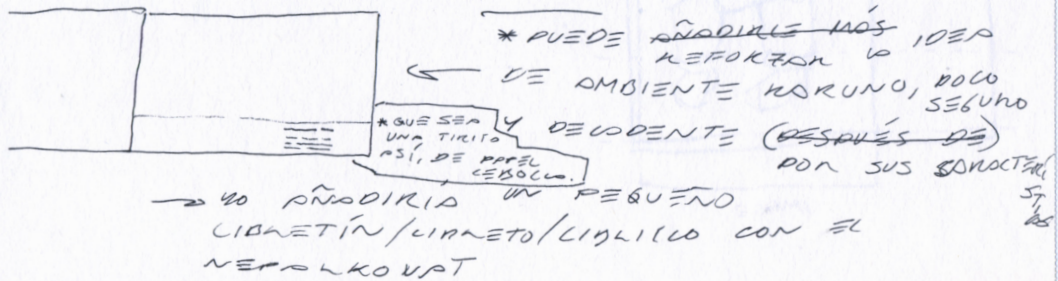 * PUEDE AÑADIRLE MÁS IDEA
REFORZAR LA
DE AMBIENTE RARUNO, POCO
SEGURO
Y DECADENTE (DESPUÉS DE)
POR SUS CARACTERÍ
STI
CAS
* QUE SEA
UNA TIRITA
ASÍ, DE PAPEL
CEBOLLA.
→ YO AÑADIRIA UN PEQUEÑO
LIBRETÍN/LIBRETO/LIBLILLO CON EL